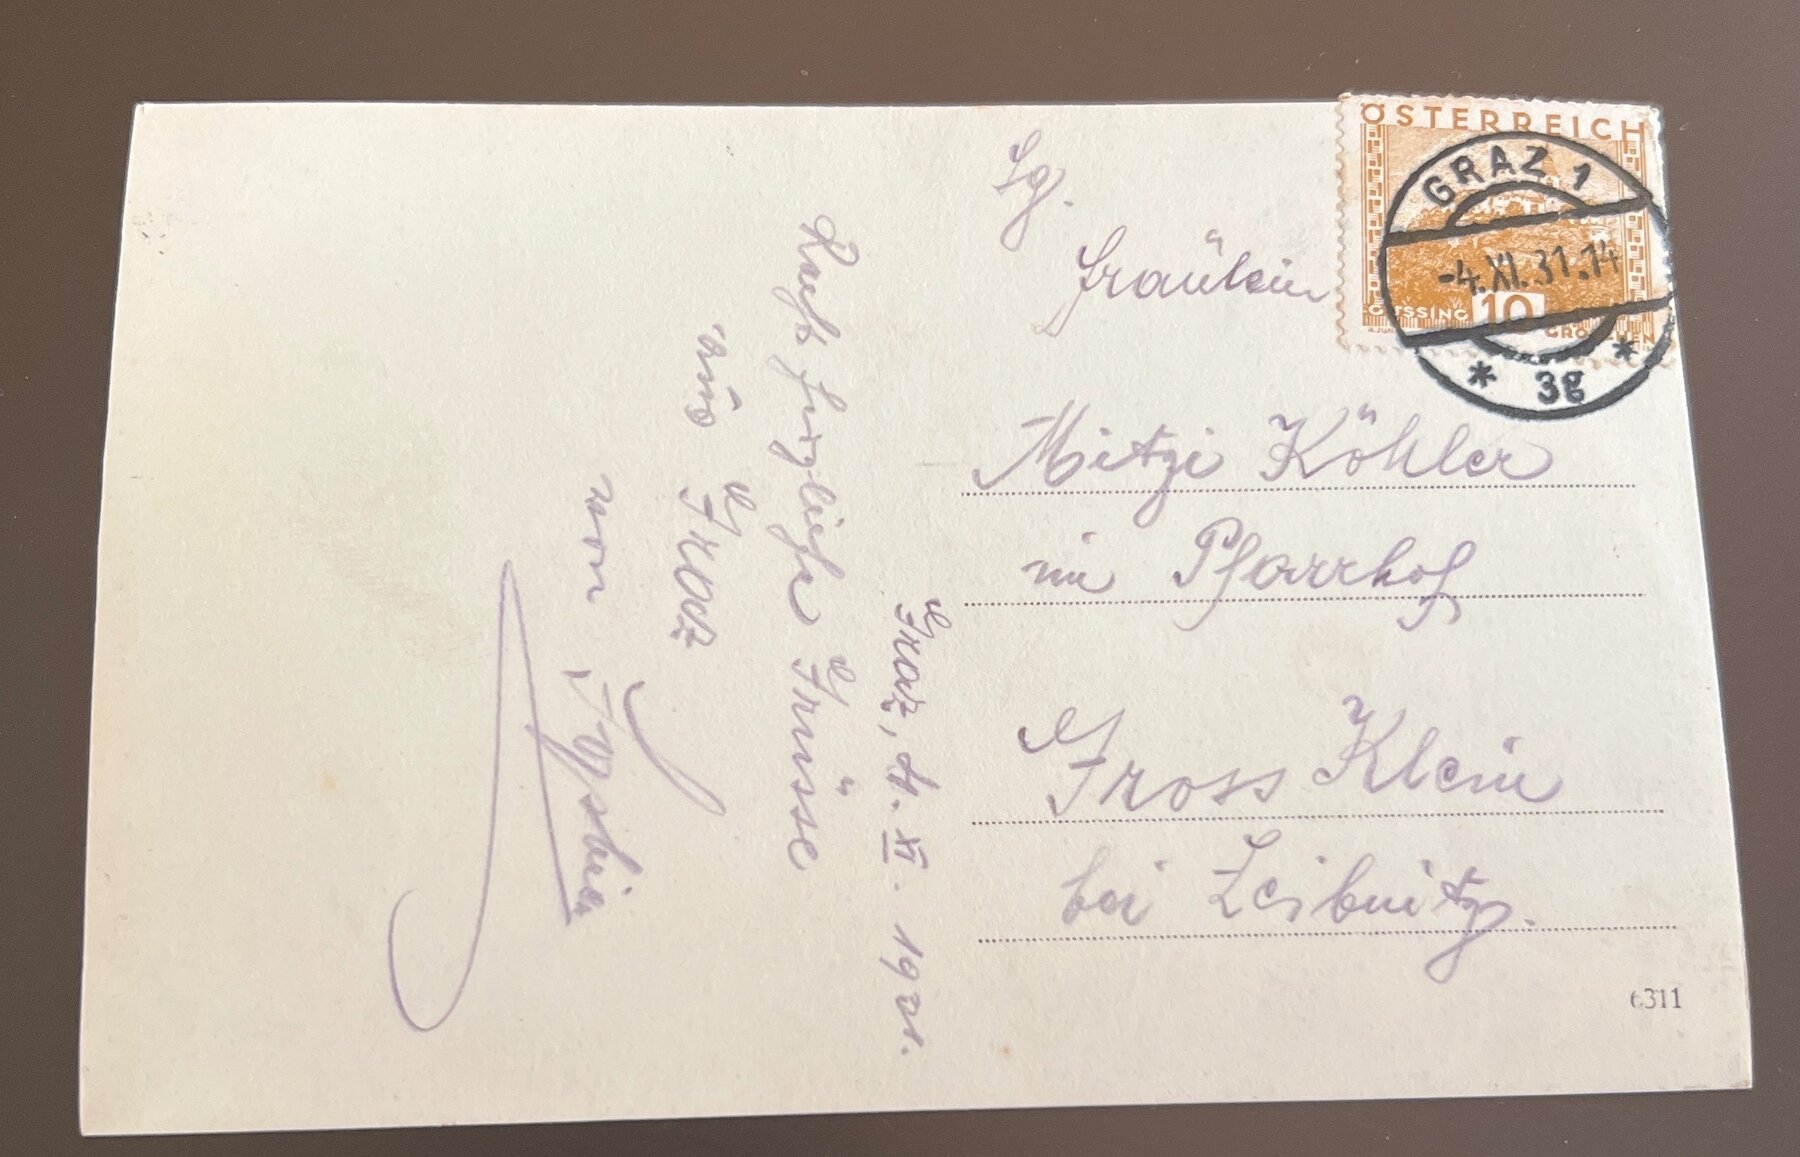 Graz, 4. XI. 1931.
Recht herzliche Grüsse
aus Graz
von
Fräulein
Mitzi Köhler
im Pfarrhof
Gross Klein
bei Leibnitz.
6311
ÖSTERREICH
GÜSSING 10 GROSCHEN
GRAZ 1
-4.XI.31.14
* 3g *